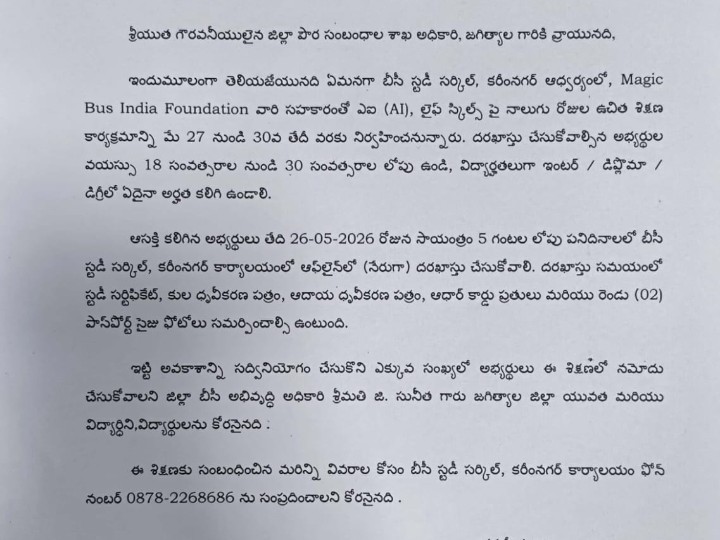 శ్రీయుత గౌరవనీయులైన జిల్లా పౌర సంబంధాల శాఖ అధికారి, జగిత్యాల గారికి వ్రాయునది,
ఇందుమూలంగా తెలియజేయునది ఏమనగా బీసీ స్టడీ సర్కిల్, కరీంనగర్ ఆధ్వర్యంలో, Magic
Bus India Foundation వారి సహకారంతో ఎఐ (AI), లైఫ్ స్కిల్స్ పై నాలుగు రోజుల ఉచిత శిక్షణ
కార్యక్రమాన్ని మే 27 నుండి 30వ తేదీ వరకు నిర్వహించనున్నారు. దరఖాస్తు చేసుకోవాల్సిన అభ్యర్థుల
వయస్సు 18 సంవత్సరాల నుండి 30 సంవత్సరాల లోపు ఉండి, విద్యార్హతలుగా ఇంటర్ / డిప్లొమా /
డిగ్రీలో ఏదైనా అర్హత కలిగి ఉండాలి.
ఆసక్తి కలిగిన అభ్యర్థులు తేది 26-05-2026 రోజున సాయంత్రం 5 గంటల లోపు పనిదినాలలో బీసీ
స్టడీ సర్కిల్, కరీంనగర్ కార్యాలయంలో ఆఫ్‌లైన్‌లో (నేరుగా) దరఖాస్తు చేసుకోవాలి. దరఖాస్తు సమయంలో
స్టడీ సర్టిఫికేట్, కుల ధృవీకరణ పత్రం, ఆదాయ ధృవీకరణ పత్రం, ఆధార్ కార్డు ప్రతులు మరియు రెండు (02)
పాస్‌పోర్ట్ సైజు ఫోటోలు సమర్పించాల్సి ఉంటుంది.
ఇట్టి అవకాశాన్ని సద్వినియోగం చేసుకొని ఎక్కువ సంఖ్యలో అభ్యర్థులు ఈ శిక్షణలో నమోదు
చేసుకోవాలని జిల్లా బీసీ అభివృద్ధి అధికారి శ్రీమతి జి. సునీత గారు జగిత్యాల జిల్లా యువత మరియు
విద్యార్థిని,విద్యార్థులను కోరనైనది .
ఈ శిక్షణకు సంబంధించిన మరిన్ని వివరాల కోసం బీసీ స్టడీ సర్కిల్, కరీంనగర్ కార్యాలయం ఫోన్
నంబర్ 0878-2268686 ను సంప్రదించాలని కోరనైనది .